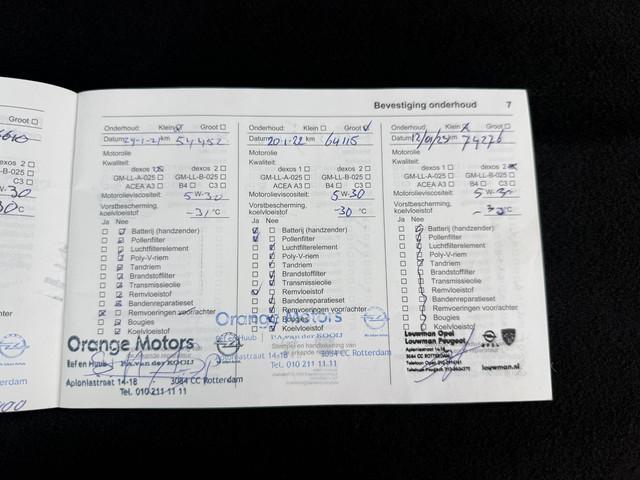 Bevestiging onderhoud 7
Groot
C3
Onderhoud: Klein Groot
Datum 29-1-21 km 54452
Motorolie
Kwaliteit:
dexos 1 dexos 2
GM-LL-A-025 GM-LL-B-025
ACEA A3 B4 C3
Motorolieviscositeit: 5 W-30
Vorstbescherming,
koelvloeistof -31 °C
Ja Nee
Batterij (handzender)
Pollenfilter
Luchtfilterelement
Poly-V-riem
Tandriem
Brandstoffilter
Transmissieolie
Remvloeistof
Bandenreparatieset
Remvoeringen voor/achter
Bougies
Koelvloeistof
Orange Motors
Eef en Huub P.A. van der KOOIJ
Aploniastraat 14-18 3084 CC Rotterdam
Tel. 010 211 11 11
Onderhoud: Klein Groot
Datum 20-1-22 km 64115
Motorolie
Kwaliteit:
dexos 1 dexos 2
GM-LL-A-025 GM-LL-B-025
ACEA A3 B4 C3
Motorolieviscositeit: 5 W-30
Vorstbescherming,
koelvloeistof -30 °C
Ja Nee
Batterij (handzender)
Pollenfilter
Luchtfilterelement
Poly-V-riem
Tandriem
Brandstoffilter
Transmissieolie
Remvloeistof
Bandenreparatieset
Remvoeringen voor/achter
Bougies
Koelvloeistof
Orange Motors
Eef en Huub P.A. van der KOOIJ
Aploniastraat 14-18 3084 CC Rotterdam
Tel. 010 211 11 11
Onderhoud: Klein Groot
Datum km 74226
Motorolie
Kwaliteit:
dexos 1 dexos 2
GM-LL-A-025 GM-LL-B-025
ACEA A3 B4 C3
Motorolieviscositeit: 5 W-30
Vorstbescherming,
koelvloeistof °C
Ja Nee
Batterij (handzender)
Pollenfilter
Luchtfilterelement
Poly-V-riem
Tandriem
Brandstoffilter
Transmissieolie
Remvloeistof
Bandenreparatieset
Remvoeringen voor/achter
Bougies
Koelvloeistof
Louwman Opel
Louwman Peugeot
Aploniastraat 14-18
3084 CC ROTTERDAM
louwman.nl